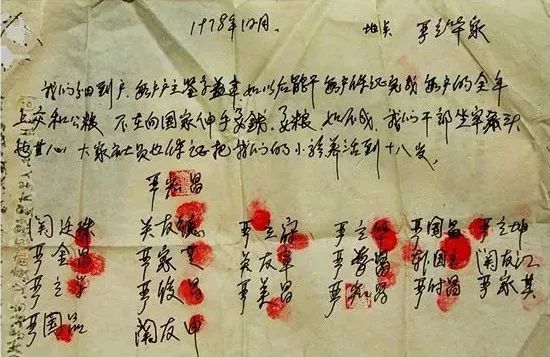 1978年12月。 地点 严立华家
我们分田到户,每户户主签字盖章,如以后能干,每户保证完成每户的全年
上交和公粮,不在向国家伸手要钱,要粮,如不成,我们干部坐牢杀头,
也甘心,大家社员也保证把我们的小孩养活到十八岁。
严宏昌
关廷珠 关友德 严立符 严立华 严国昌 严立坤
严金昌 严家芝 关友章 严学昌 韩国云 关友江
严立学 严俊昌 严美昌 严宏昌 严付昌 严家其
严国品 关友申